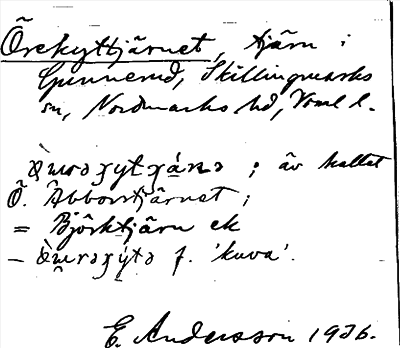 Örekyttjärnet, tjärn i
Gunnerud, Skillingmarks
sn, Nordmarks hd, Vrml l.
; äv kallat
Ö. Abborrtjärnet;
= Björktjärn ek
– f. 'kuva'.
E. Andersson 1936.